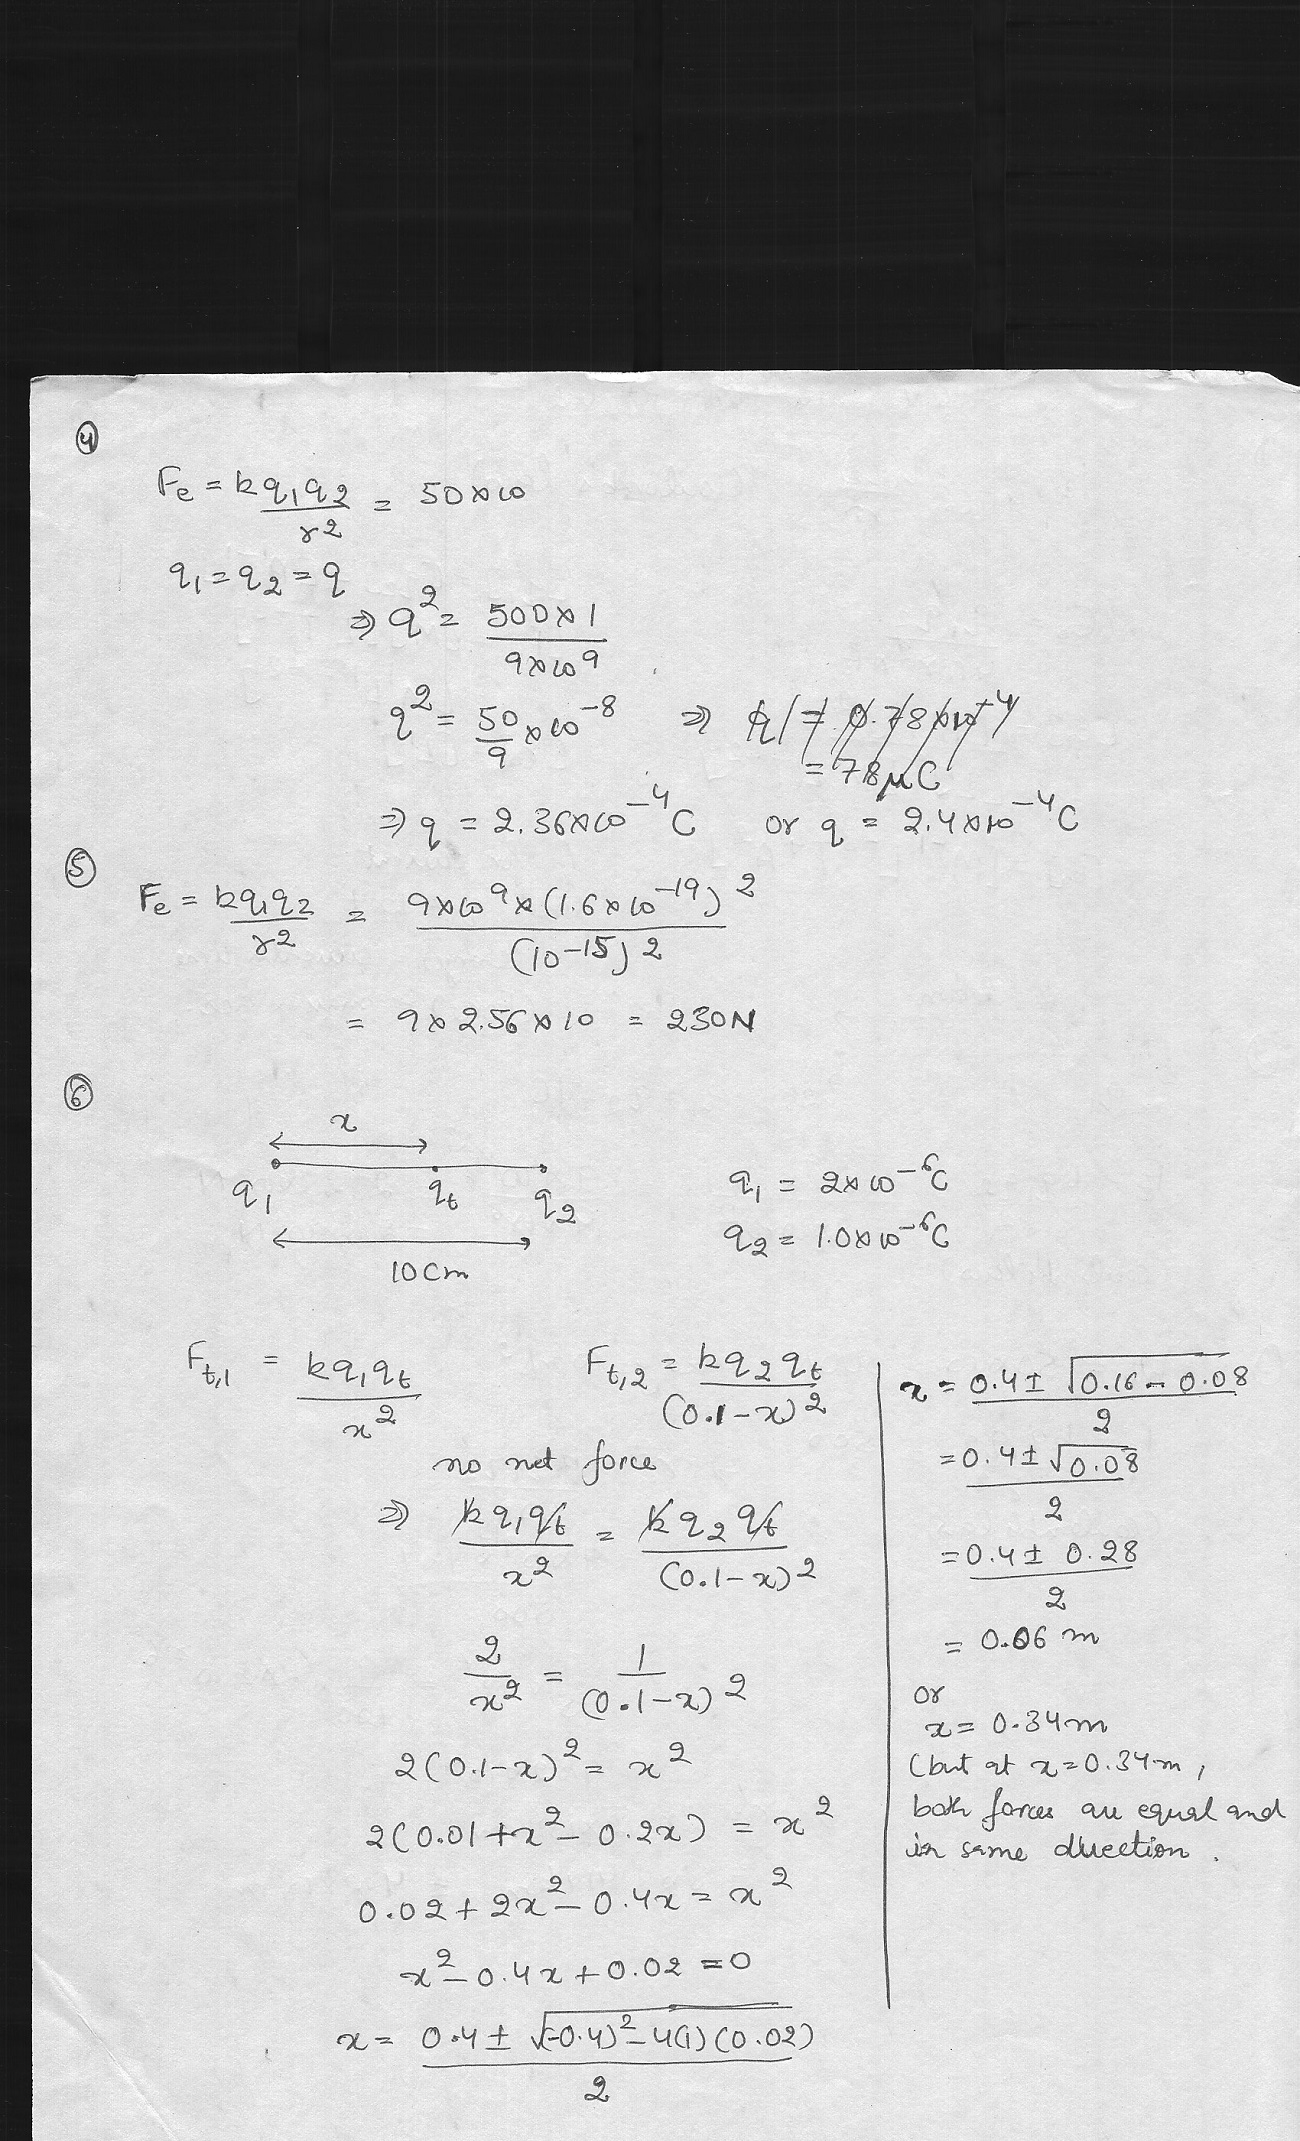 ④
Fe = kq₁q₂/r² = 50×10
q₁ = q₂ = q
⇒ q² = 500×1/9×10⁹
q² = 50/9 ×10⁻⁸ ⇒ q = 0.78×10⁻⁴
= 78μC
⇒ q = 2.36×10⁻⁴C or q = 2.4×10⁻⁴C
⑤
Fe = kq₁q₂/r² = 9×10⁹×(1.6×10⁻¹⁹)²/(10⁻¹⁵)²
= 9×2.56×10 = 230N
⑥
x
q₁ qt q₂
10cm
q₁ = 2×10⁻⁶C
q₂ = 1.0×10⁻⁶C
Ft,1 = kq₁qt/x² Ft,2 = kq₂qt/(0.1-x)²
no net force
⇒ kq₁qt/x² = kq₂qt/(0.1-x)²
2/x² = 1/(0.1-x)²
2(0.1-x)² = x²
2(0.01+x²-0.2x) = x²
0.02+2x²-0.4x = x²
x²-0.4x+0.02 = 0
x = 0.4±√(-0.4)²-4(1)(0.02)/2
x = 0.4±√0.16-0.08/2
= 0.4±√0.08/2
= 0.4±0.28/2
= 0.06 m
or
x = 0.34m
(but at x=0.34m,
both forces are equal and
in same direction.